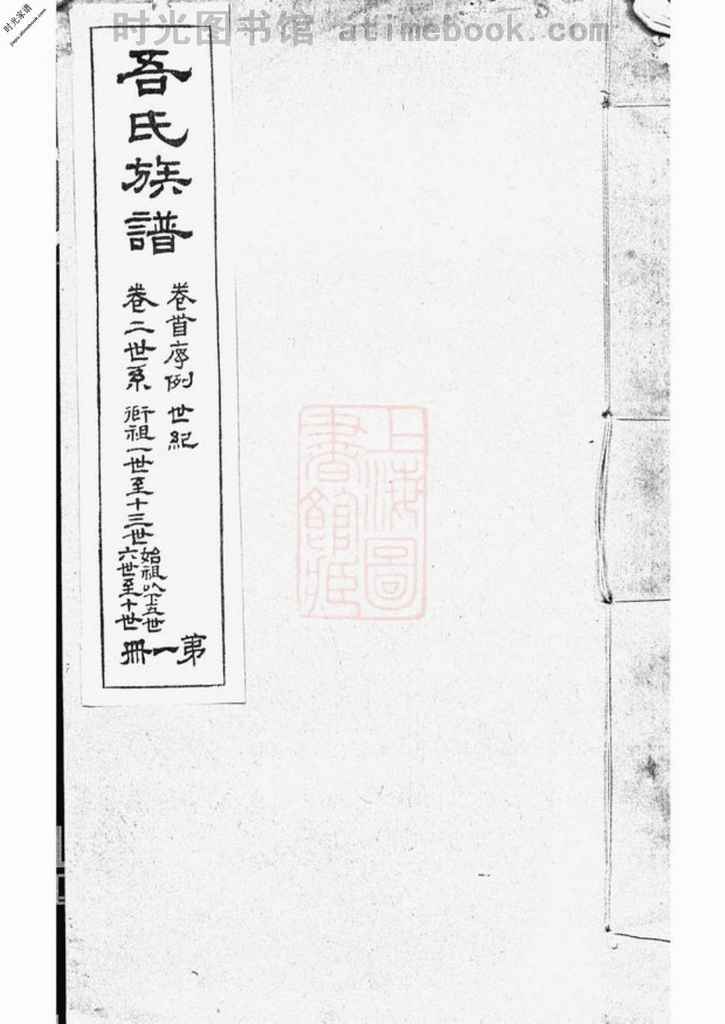 时光图书馆 atimebook.com
时光家谱
吾氏族譜
卷首序例 世紀
卷二世系 衜祖一世至十三世
始祖以下五世
六世至十世
第一冊
上海圖書館藏